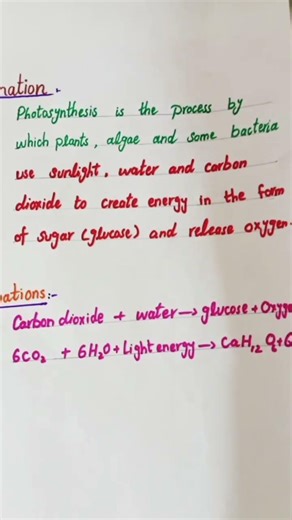 nation :-
Photosynthesis is the process by
which plants, algae and some bacteria
use sunlight, water and carbon
dioxide to create energy in the form
of sugar (glucose) and release oxygen.
nations:-
Carbon dioxide + water → glucose + Oxyge
6CO₂ + 6H₂O + Light energy → CaH₁₂